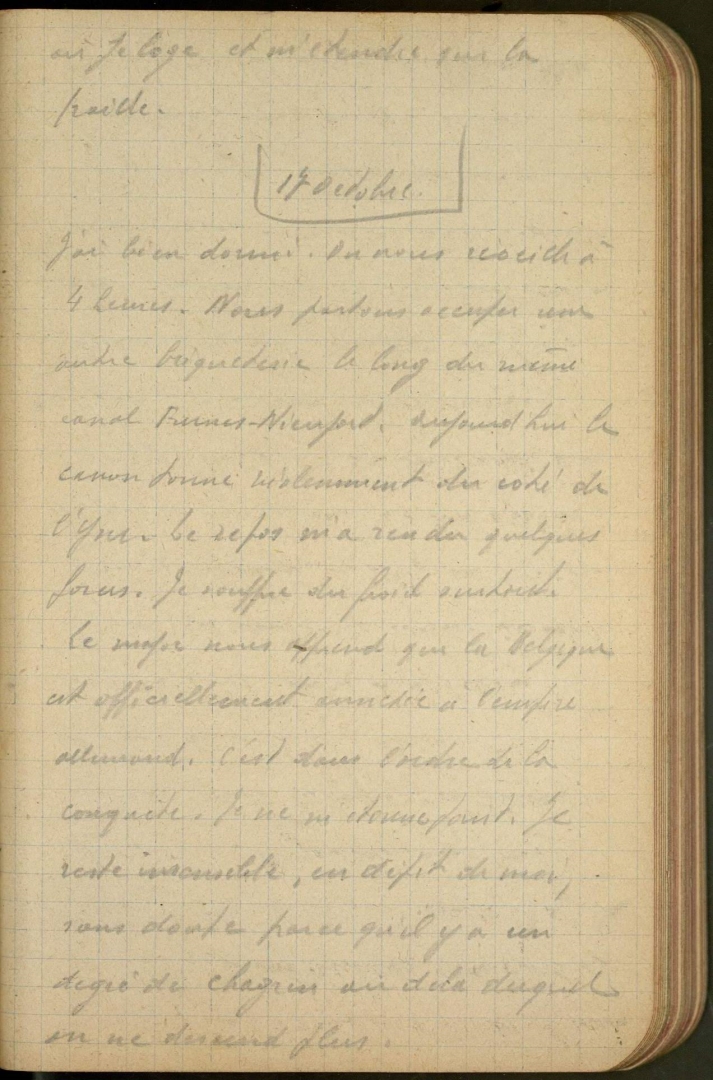 où je loge et m'étendre sur la
paille.
17 Octobre.
J'ai bien dormi. On nous réveille à
4 heures. Nous partons occuper une
autre briqueterie le long du même
canal Furnes-Nieuport. Aujourd'hui le
canon donne violemment du côté de
l'Yser. Le repos m'a rendu quelques
forces. Je souffre du froid surtout.
Le major nous apprend que la Belgique
est officiellement annexée à l'empire
allemand. C'est dans l'ordre de la
conquête. Je ne m'étonne point. Je
reste insensible, en dépit de moi,
sans doute parce qu'il y a un
degré de chagrin au delà duquel
on ne descend plus.